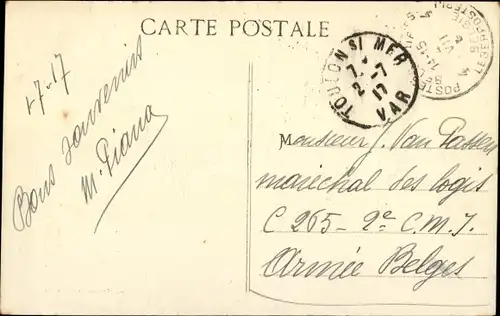 CARTE POSTALE
1-7-17
Bons souvenirs
M. Piana
TOULON S/ MER
2-7
17
VAR
Monsieur J. Van Passen
maréchal des logis
C 265 - 2e C.M.I.
Armée Belges